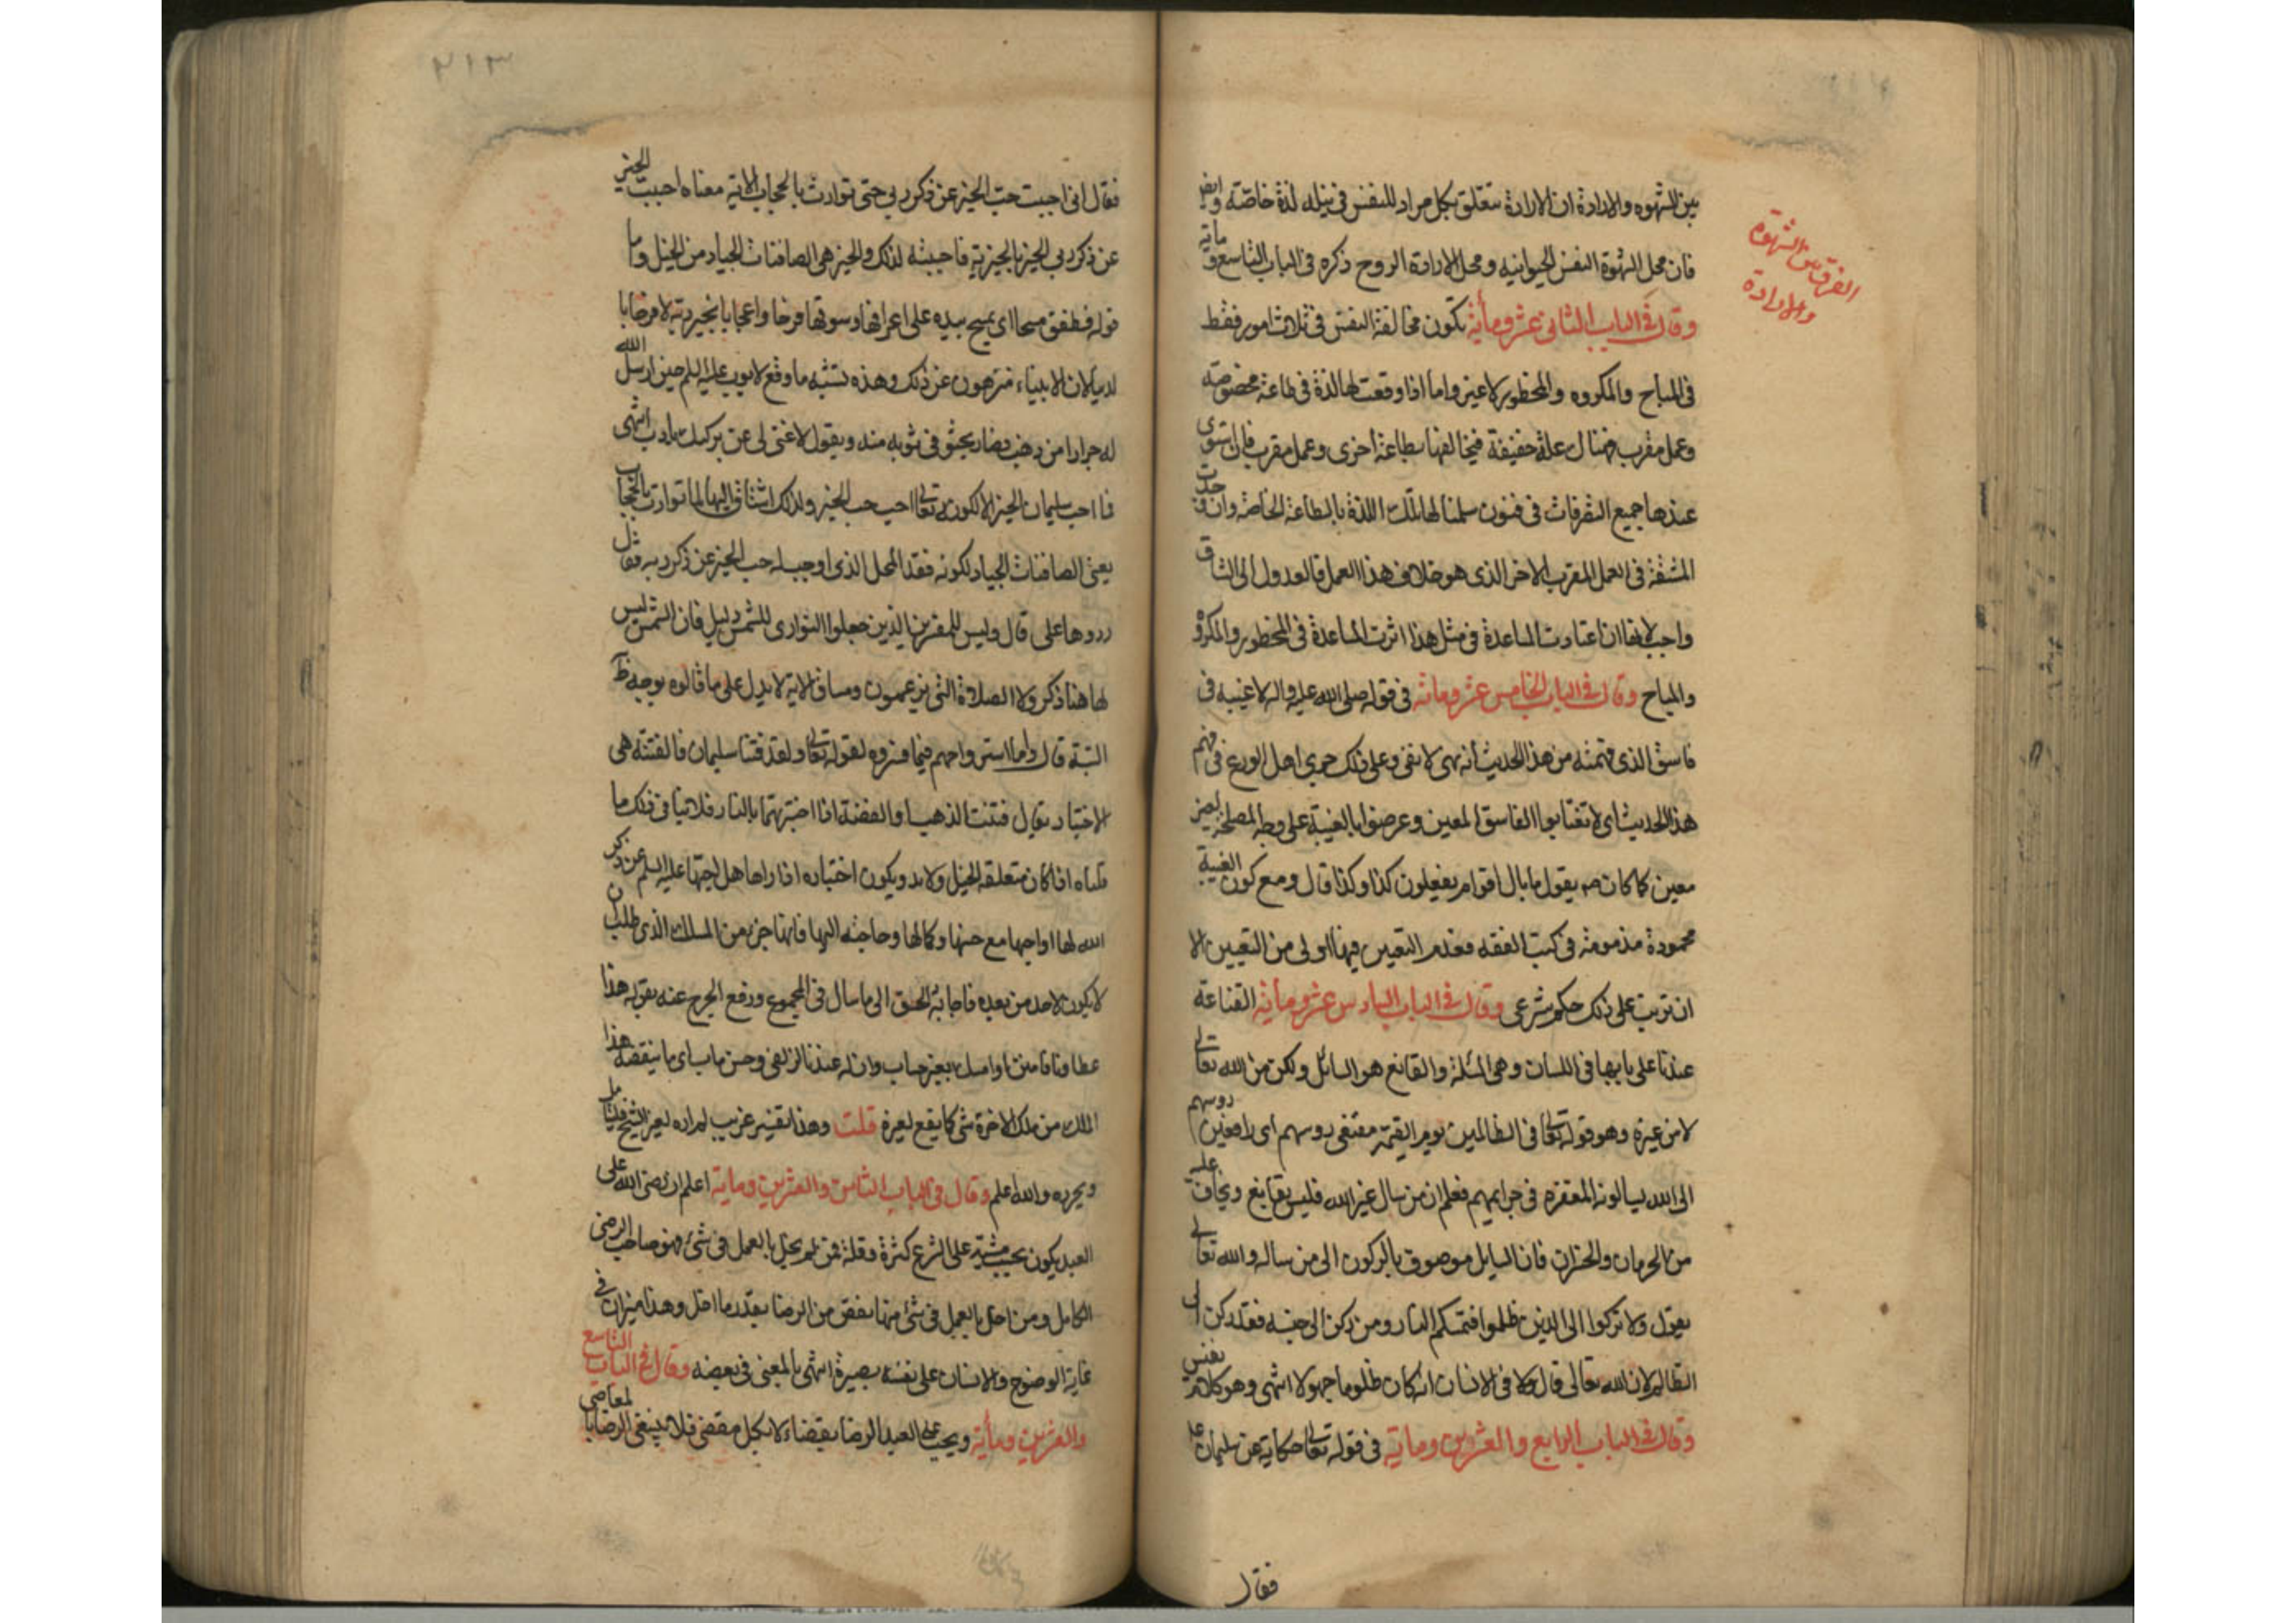 الفرق بين الشهوة
والارادة
بين الشهوه والارادة ان الارادة تتعلق بكل مراد للنفس فى نيله لذة خاصة وايض
فان محل الشهوة النفس الحيوانيه ومحل الارادة الروح ذكره فى الباب التاسع و مايه
وقال فى الباب الثانى عشر ومأية تكون مخالفة النفس فى ثلاث امور فقط
فى المباح والمكروه والمحظور لاغير واما اذا وقعت لها لذة فى طاعة مخصوصة
وعمل مقرب فهناك علة خفيفة فيخالفها بطاعة اخرى وعمل مقرب فان استوى
عندها جميع التفرقات فى فنون سلمنا لها تلك اللذة بالطاعة الخاصة وان وجدت
المشقة فى العمل المقرب الاخر الذى هو خلاف هذا العمل فالعدول الى الشاق
واجب لانها ان اعتادت المساعدة فى مثل هذا اثرت المساعدة فى المحظور والمكروه
والمباح وقال فى الباب الخامس عشر ومائه فى قوله صلى الله عليه واله لاغيبه فى
فاسق الذى فهمته من هذا الحديث انه نهى لا نفى وعلى ذلك جرى اهل الورع فى فهم
هذا الحديث اى لا تغتابوا الفاسق المعين وعرضوا بالغيبة على وجه المصلحة لغير
معين كما كان صم يقول ما بال اقوام يفعلون كذا وكذا قال ومع كون الغيبة
محمودة مذمومة فى كتب الفقه فعدم التعيين فيها اولى من التعيين الا
ان ترتب على ذلك حكم شرعى وقال فى الباب السادس عشر ومأيه القناعة
عندنا على بابها فى اللسان وهى المسئلة والقانع هو السائل ولكن من الله تعالى
لا من غيره وهو قوله تعالى فى الظالمين يوم القيمة مقنعى روسهم اى رافعين روسهم
الى الله يسالونه المغفرة فى جرايمهم فعلم ان من سال غير الله فليس بقانع ويخاف عليه
من الحرمان والخسران فان السايل موصوف بالركون الى من ساله والله تعالى
يقول ولا تركنوا الى الذين ظلموا فتمسكم النار ومن ركن الى جنسه فقد ركن الى
الظالم لان الله تعالى قال فى الانسان انه كان ظلوما جهولا انتهى وهو كلام نفيس
وقال فى الباب الرابع والعشرين وماية فى قوله تعالى حكاية عن سليمان عليه
فقال
٢١٣
فقال انى احببت حب الخير عن ذكر ربى حتى توارت بالحجاب الاية معناه احببت الخير
عن ذكر ربى الخير بالخيرية فاحببته لذلك والخير هى الصافنات الجياد من الخيل واما
قوله فطفق مسحا اى يمسح بيده على اعرافها وسوقها فرحا واعجابا بخير ربه لا فرحا با
لدنيا لان الانبياء منزهون عن ذلك وهذه تشبه ما وقع لايوب عليه السلم حين ارسل الله
له جرادا من ذهب فصار يحثو فى ثوبه منه ويقول لا غنى لى عن بركتك يا رب انتهى
فما احب سليمان الخير الا لكونه تعالى احب حب الخير ولذلك اشتاق اليها لما توارت بالحجاب
يعنى الصافنات الجياد لكونه فقد المحل الذى اوجب له حب الخير عن ذكر ربه فقال
ردوها على قال وليس للمفسرين الذين جعلوا التوارى للشمس دليل فان الشمس ليس
لها هنا ذكر ولا الصلاة التى يزعمون ومساق الاية لا يدل على ما قالوه بوجه ظ
البتة قال واما استرواحهم فيما فسروه لقوله تعالى ولقد فتنا سليمان فالفتنة هى
الاختبار يقال فتنت الذهب والفضة اذا اختبرتهما بالنار فلا تنافى ذلك ما
قلناه اذا كان متعلقه الخيل ولا بد ويكون اختباره اذا راها هل يحبها عليه السلم عن ذكر
الله لها او احبها مع حسنها وكمالها وحاجته اليها فانها جزء من الملك الذى طلب ان
لا يكون لاحد من بعده فاجابه الحق الى ما سال فى المجموع ورفع الحرج عنه بقوله هذا
عطاونا فامنن او امسك بغير حساب وان له عندنا لزلفى وحسن ماب اى ما ينقصه هذا
الملك من ملك الاخرة شى كما يقع لغيره قلت وهذا تفسير غريب لم اره لغير الشيخ فليتامل
ويحرره والله اعلم وقال فى الباب الثامن والعشرين وماية اعلم ان رضى الله على
العبد يكون بحسب مشيه على الشرع كثرة وقلة فمن لم يخل بالعمل فى شئ فهو صاحب الرضى
الكامل ومن اخل بالعمل فى شئ منها نقص من الرضا بقدر ما اخل وهذا ميزان فى
غاية الوضوح والانسان على نفسه بصيرة انتهى بالمعنى فى بعضه وقال فى الباب التاسع
والعشرين ومأية ويجب على العبد الرضا بقضاء لا بكل مقضى فلا ينبغى الرضا بالمعاصى